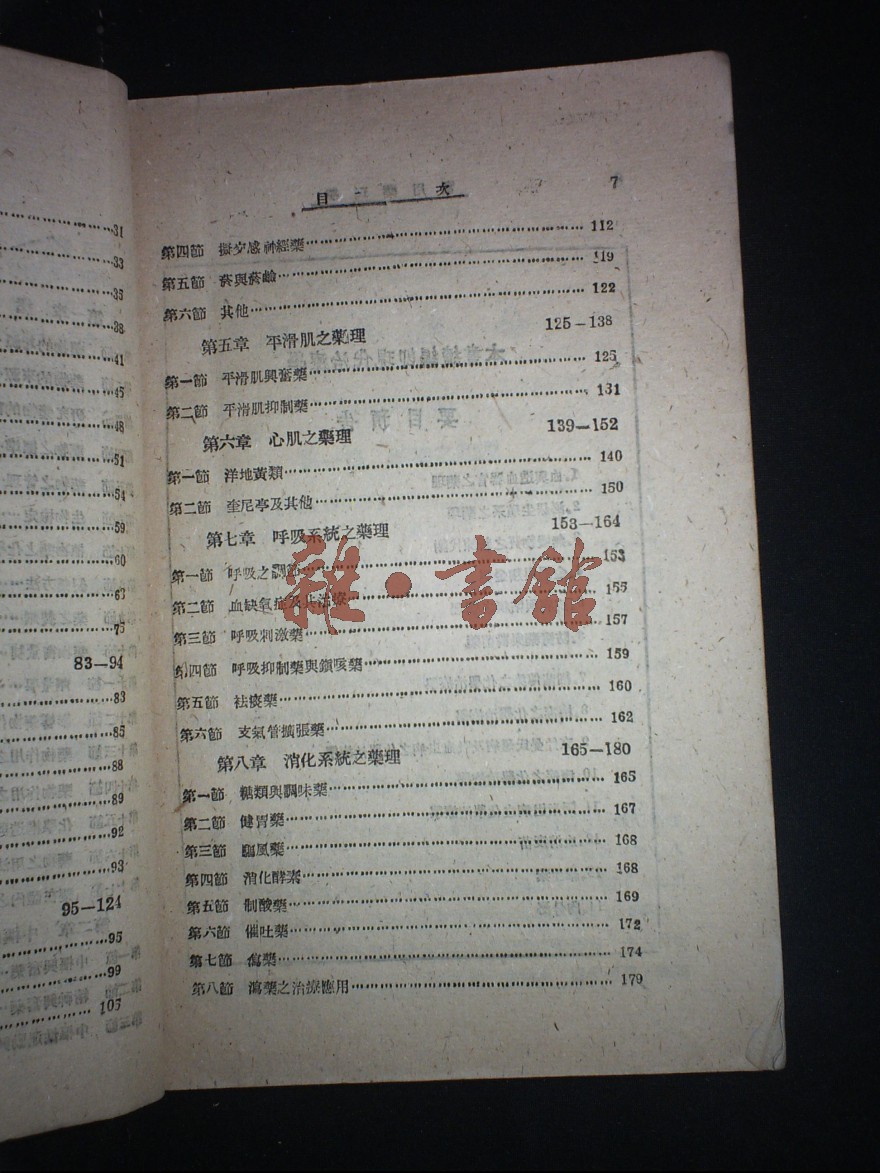 31
33
35
38
41
45
48
51
54
59
60
63
75
83—94
83
85
88
89
92
93
95—124
95
99
105
目 次 7
第四節 擬交感神經藥 112
第五節 菸與菸鹼 119
第六節 其他 122
第五章 平滑肌之藥理 125—138
第一節 平滑肌興奮藥 125
第二節 平滑肌抑制藥 131
第六章 心肌之藥理 139—152
第一節 洋地黃類 140
第二節 奎尼亭及其他 150
第七章 呼吸系統之藥理 153—164
第一節 呼吸之調節 153
第二節 血缺氧症及其治療 155
第三節 呼吸刺激藥 157
第四節 呼吸抑制藥與鎮咳藥 159
第五節 祛痰藥 160
第六節 支氣管擴張藥 162
第八章 消化系統之藥理 165—180
第一節 糖類與調味藥 165
第二節 健胃藥 167
第三節 驅風藥 168
第四節 消化酵素 168
第五節 制酸藥 169
第六節 催吐藥 172
第七節 瀉藥 174
第八節 瀉藥之治療應用 179
雜·書館